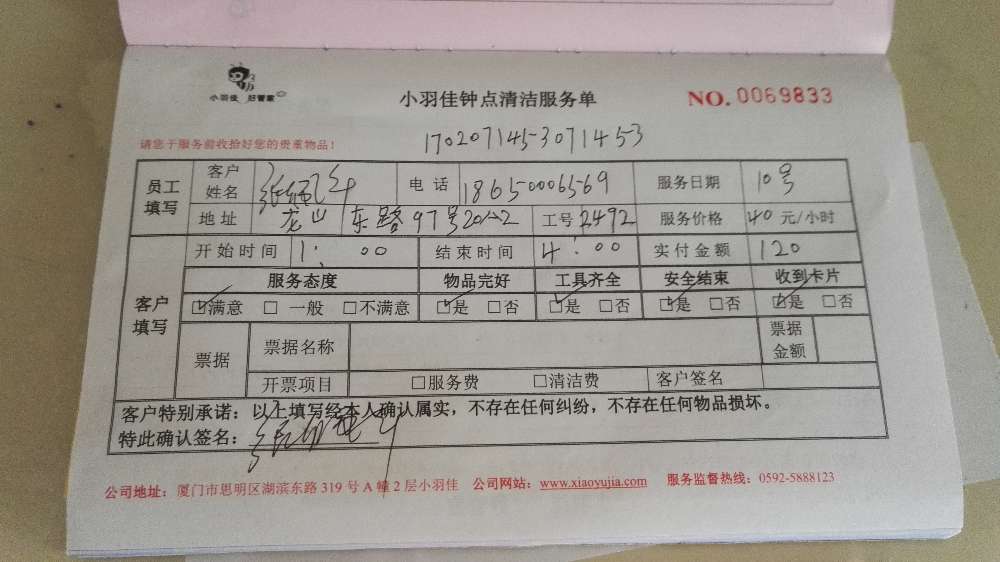 小羽佳 好管家
小羽佳钟点清洁服务单
NO.0069833
请您于服务前收拾好您的贵重物品！
170207145307 1453
员工填写 客户姓名 电话 18650006569 服务日期 10号
地址 龙山东路97号 工号 2492 服务价格 40 元/小时
客户填写 开始时间 1:00 结束时间 4:00 实付金额 120
服务态度 物品完好 工具齐全 安全结束 收到卡片
☑满意 □一般 □不满意 ☑是 □否 ☑是 □否 ☑是 □否 ☑是 □否
票据 票据名称 票据金额
开票项目 □服务费 □清洁费 客户签名
客户特别承诺：以上填写经本人确认属实，不存在任何纠纷，不存在任何物品损坏。
特此确认签名：
公司地址：厦门市思明区湖滨东路 319 号 A 幢 2 层小羽佳 公司网站：www.xiaoyujia.com 服务监督热线：0592-5888123